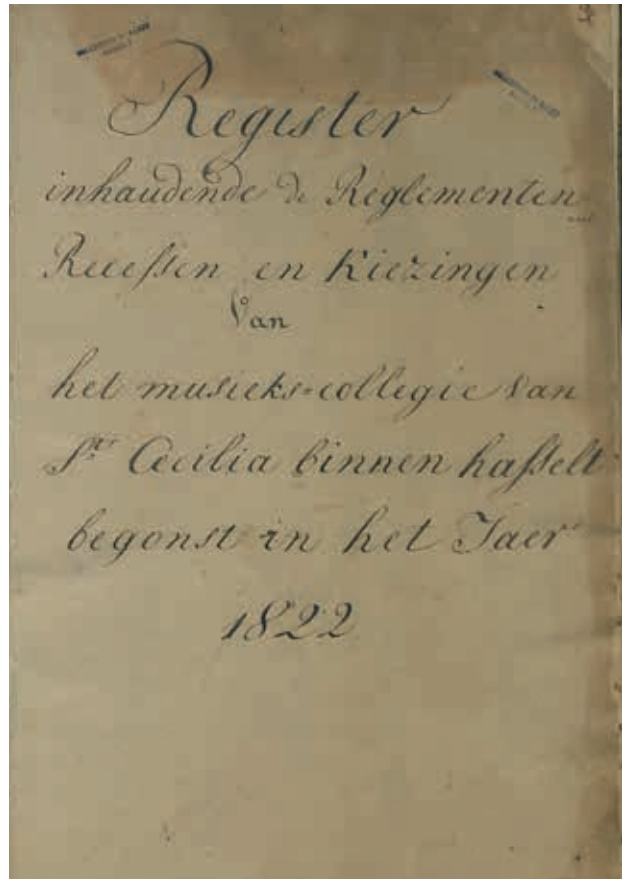 Register
inhaudende de Reglementen
Recessen en Kiezingen
Van
het musieks=collegie Van
Ste Cecilia binnen hasselt
begonst in het Jaer
1822